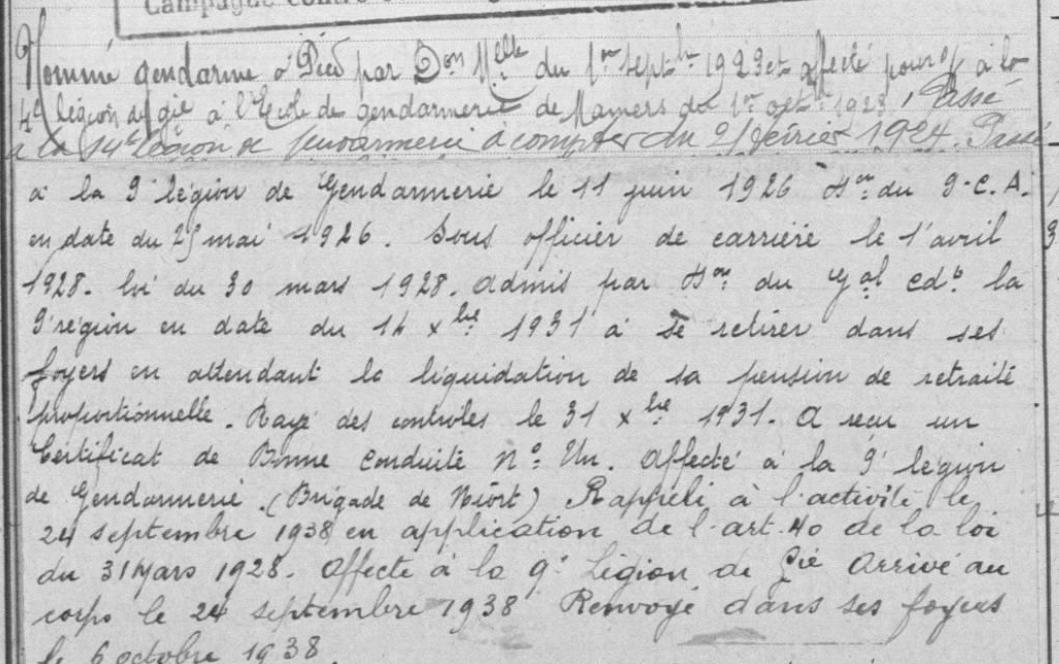 Campagne contre
Nommé gendarme à Pied par Don Melle du 1er septbre 1923 et affecté pour off à la
4e légion de gie à l'Ecole de gendarmerie de Mamers du 1er oct. 1923, Passé
à la 14e légion de gendarmerie à compter du 21 février 1924. Passé
à la 9e légion de Gendarmerie le 11 juin 1926 Don du 9e C.A.
en date du 29 mai 1926. Sous officier de carrière le 1er avril
1928. loi du 30 mars 1928. Admis par Don du Gal Cdt la
9e région en date du 14 xbre 1931 à se retirer dans ses
foyers en attendant la liquidation de sa pension de retraite
proportionnelle. Rayé des controles le 31 xbre 1931. A reçu un
Certificat de Bonne Conduite No Un. Affecté à la 9e légion
de Gendarmerie. (Brigade de Niort) Rappelé à l'activité le
24 septembre 1938 en application de l'art. 40 de la loi
du 31 Mars 1928. Affecté à la 9e Légion de Gie Arrivé au
corps le 24 septembre 1938 Renvoyé dans ses foyers
le 6 octobre 1938.